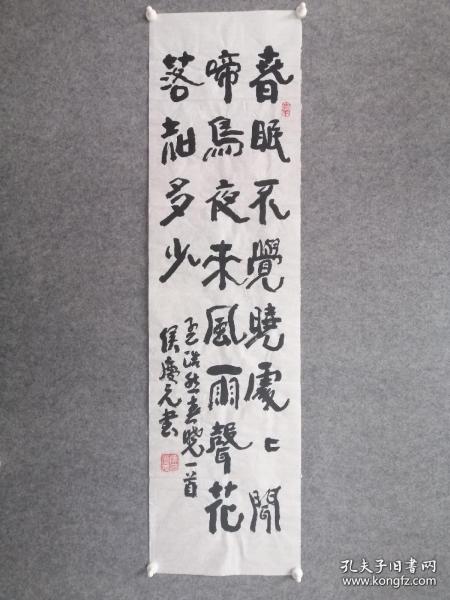 春眠不覺曉處〻聞
啼鳥夜来風雨聲花
落知多少
孟浩然春曉一首
侯慶元書
孔夫子旧书网
www.kongfz.com